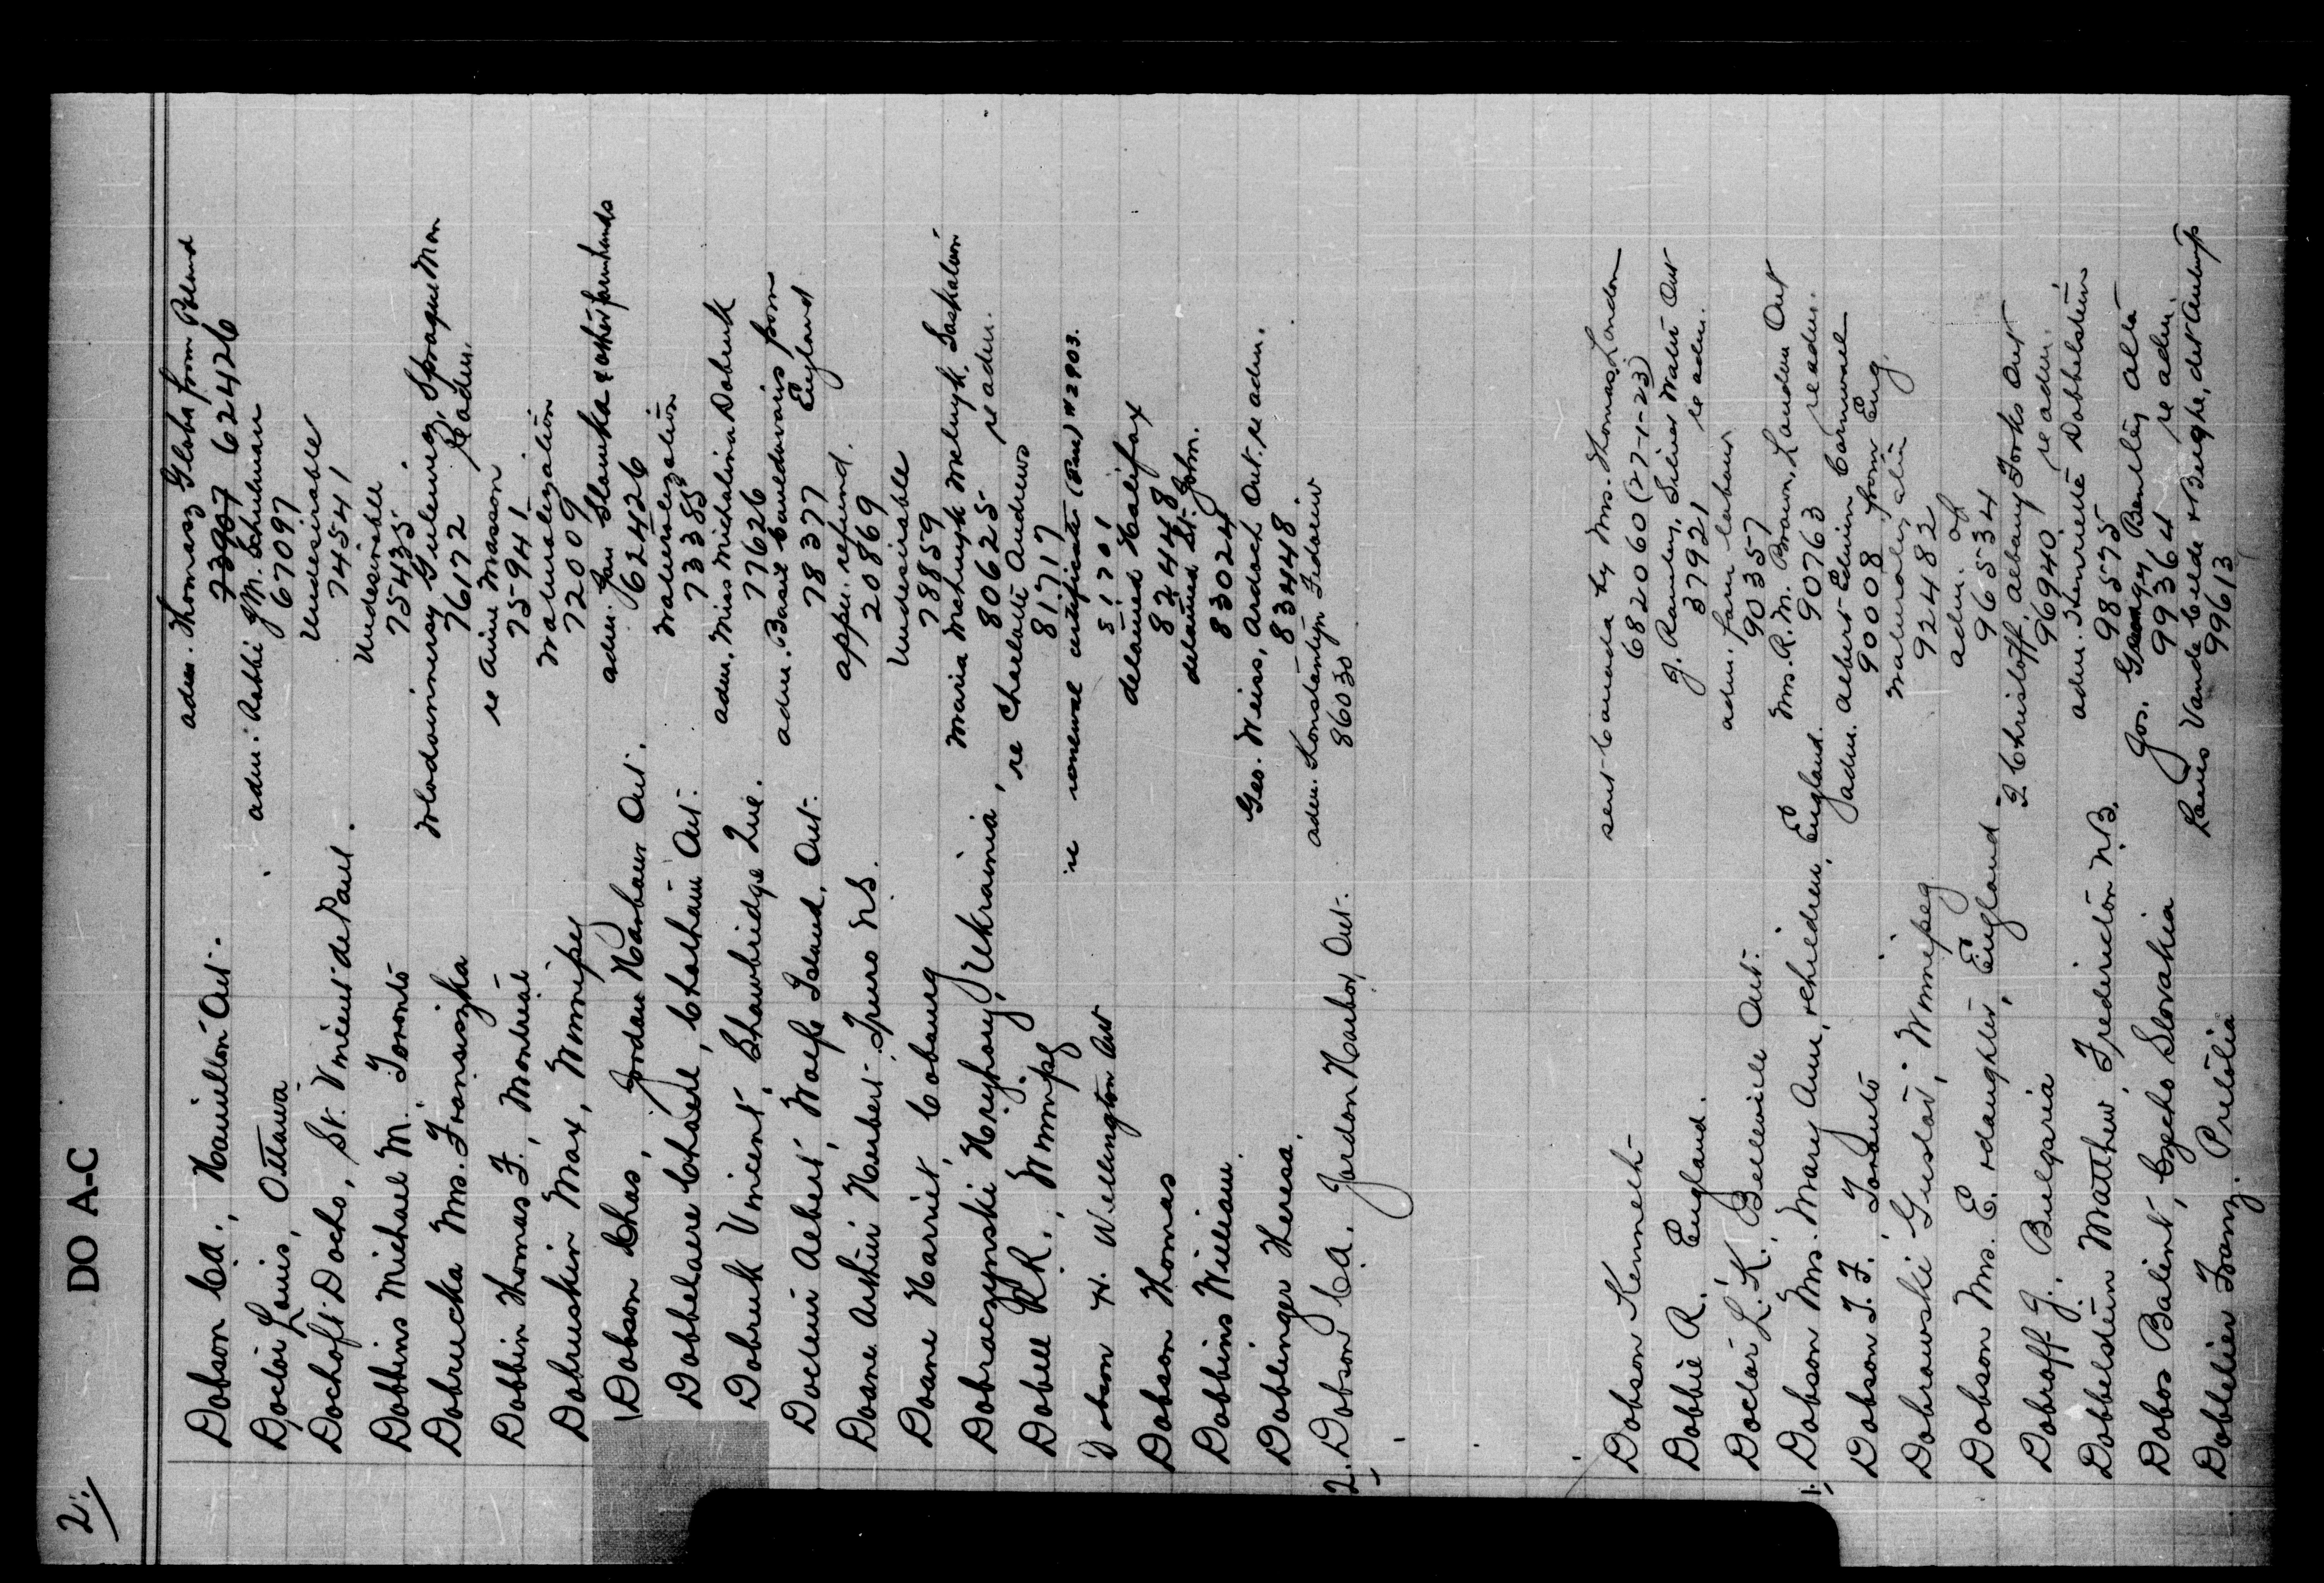 2/ DO A-C
Dobson C.A., Hamilton Ont. adm. Thomasz Globa from Poland
73967 62426
Doctor Louis, Ottawa adm. Rabbi J.M. Schulman
67097
Dochoft Docho, St. Vincent de Paul. Undesirable
74541
Dobbins Michael M. Toronto Undesirable
75435
Dobrucka Mrs. Fransiszka Wlodzimierz Gulewicz, Sprague Man
76172 re adm.
Dobbin Thomas F., Montreal re Aime Masson
75941
Dobruskin Max, Winnipeg Naturalization
72009
Dobson Chas, Jordan Harbour Ont. adm. Jan Slawuka & other farmhands
62426
Dobbelaere Charel, Chatham Ont. Naturalization
73385
Dobruk Vincent, Shawbridge Que. adm. Miss Michalina Dobruk
77626
Docteur Albert, Wolfe Island, Ont. adm. Basil from
78377 England
Doane Arthur Hubert Truro N.S. appn. refund.
20869
Doane Harriet, Cobourg Undesirable
78859
Dobraczynski Hryhory, Ukrainia, Maria Melnyk, Saskatoon
80625 re adm.
Dobell R.R., Winnipeg re Charlotte Andrews
81717
Dobson H. Wellington Ont re renewal certificate #2903.
51701
Dobson Thomas detained Halifax
82444
Dobbins William detained St. John.
83024
Doblinger Theresa. Geo. Weiss, Ardoch Ont. re adm.
83448
2. Dobson C.A. Jordon Harbor, Ont. adm. Konstantyn Fedorciw
86030
Dobson Kenneth sent Canada by Mrs. Thomas, London
682060 (27-1-23)
Dobbie R. England. J. Ramley, Silver Water Ont
37921 re adm.
Doctor L.K. Belleville Ont. adm. farm labour
90357
1. Dobson Mrs. Mary Ann, & children, England. Mrs. R.M. Brown, London Ont
90763 re adm.
Dobson T.F. Toronto adm. Albert Edwin Cornwell
90008 from Eng.
Dobrowski Gustav, Winnipeg Naturalization
92482
Dobson Mrs. E. & daughter, England adm. of
96534
Dobroff J. Bulgaria I Christoff, Albany Forks Ont
96940 re adm.
Dobbelstein Matthew, Fredericton N.B. adm. Henriette Dobbelstein
98575
Dobos Balint, Czecho Slovakia Jos. Bentley Alta
99364 re adm.
Dobbelier Franz. Pretolia Louis Vande Velde & Burghe, det Antwerp
99613